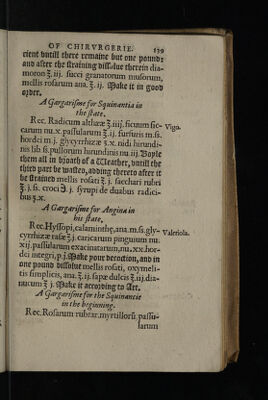 OF CHIRVRGERIE. 139
cient vntill there remaine but one pound:
and after the straining dissolue therein dia-
moron ℥. iij. succi granatorum musorum,
mellis rosarum ana. ℥. ij. Make it in good
order.
A Gargarisme for Squinantia in
the state.
Rec. Radicum althææ ℥. iiij. ficuum sic-
carum nu.x. passularum ℥. ij. furfuris m.ss.
hordei m. j. glycyrrhizæ ʒ.x. nidi hirundi-
nis lib ss. pullorum hirundinis nu. iij. Boyle
them all in broath of a Weather, vntill the
third part be wasted, adding thereto after it
be strained mellis rosati ℥. j. sacchari rubri
℥. j. ss. croci ℈. j. syrupi de duabus radici-
bus ʒ.x.
Vigo.
A Gargarisme for Angina in
his state.
Rec. Hyssopi, calaminthe, ana. m. ss. gly-
cyrrhizæ rasæ ℥. j. caricarum pinguium nu.
xij. passularum exacinatarum, nu. xx. hor-
dei integri, p. j. Make your decoction, and in
one pound dissolue mellis rosati, oxymeli-
tis simplicis, ana. ℥. ij. sapæ dulcis ℥. iij. dia-
nucum ℥ j. Make it according to Art.
Valeriola.
A Gargarisme for the Squinancie
in the beginning.
Rec. Rosarum rubrar. myrtillorū. passu-
larum